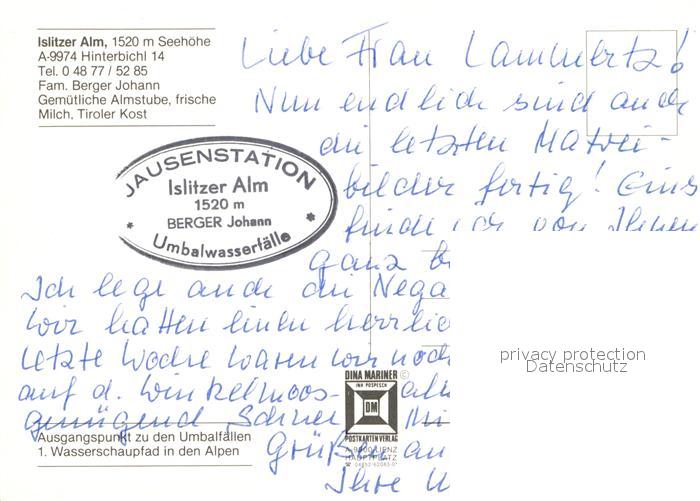 Islitzer Alm, 1520 m Seehöhe
A-9974 Hinterbichl 14
Tel. 0 48 77 / 52 85
Fam. Berger Johann
Gemütliche Almstube, frische
Milch, Tiroler Kost
Liebe Frau Lammertz!
Nun endlich sind auch
die letzten Matrei-
bilder fertig! Eins
finde ich von Ihnen
ganz
JAUSENSTATION
Islitzer Alm
1520 m
BERGER Johann
* Umbalwasserfälle *
Ich lege auch die Nega
Wir hatten einen herrlic
letzte Woche waren wir noch
auf d. Winkelmoos-
genügend Schnee
Grüße an
Ihre
privacy protection
Datenschutz
DINA MARINER ©
INH POSPESCH
DM
POSTKARTENVERLAG
A-9900 LIENZ
HAUPTPLATZ
Ausgangspunkt zu den Umbalfällen
1. Wasserschaupfad in den Alpen